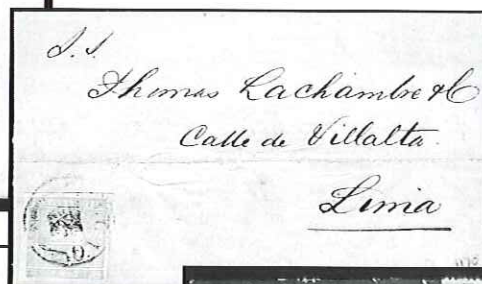 S. S.
Thomas Lachambre & C
Calle de Villalta.
Lima